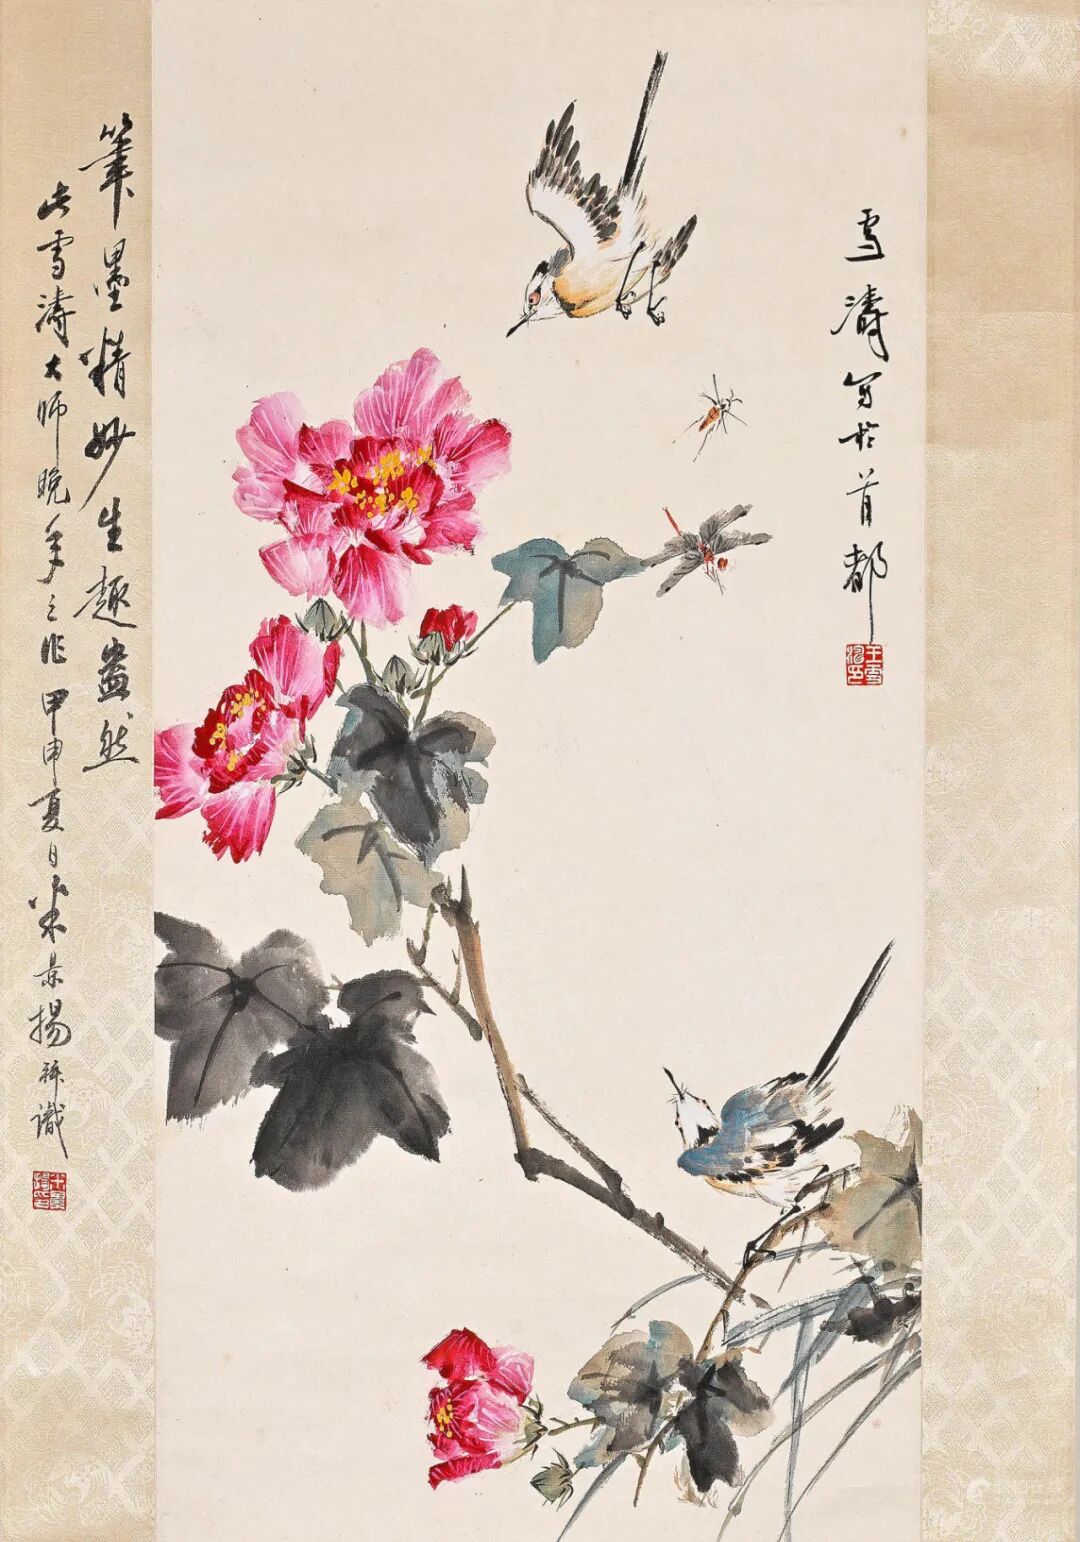 雪濤写於首都
王雪濤印
筆墨精妙生趣盎然
此雪濤大师晚年之作甲申夏日米景揚拜識